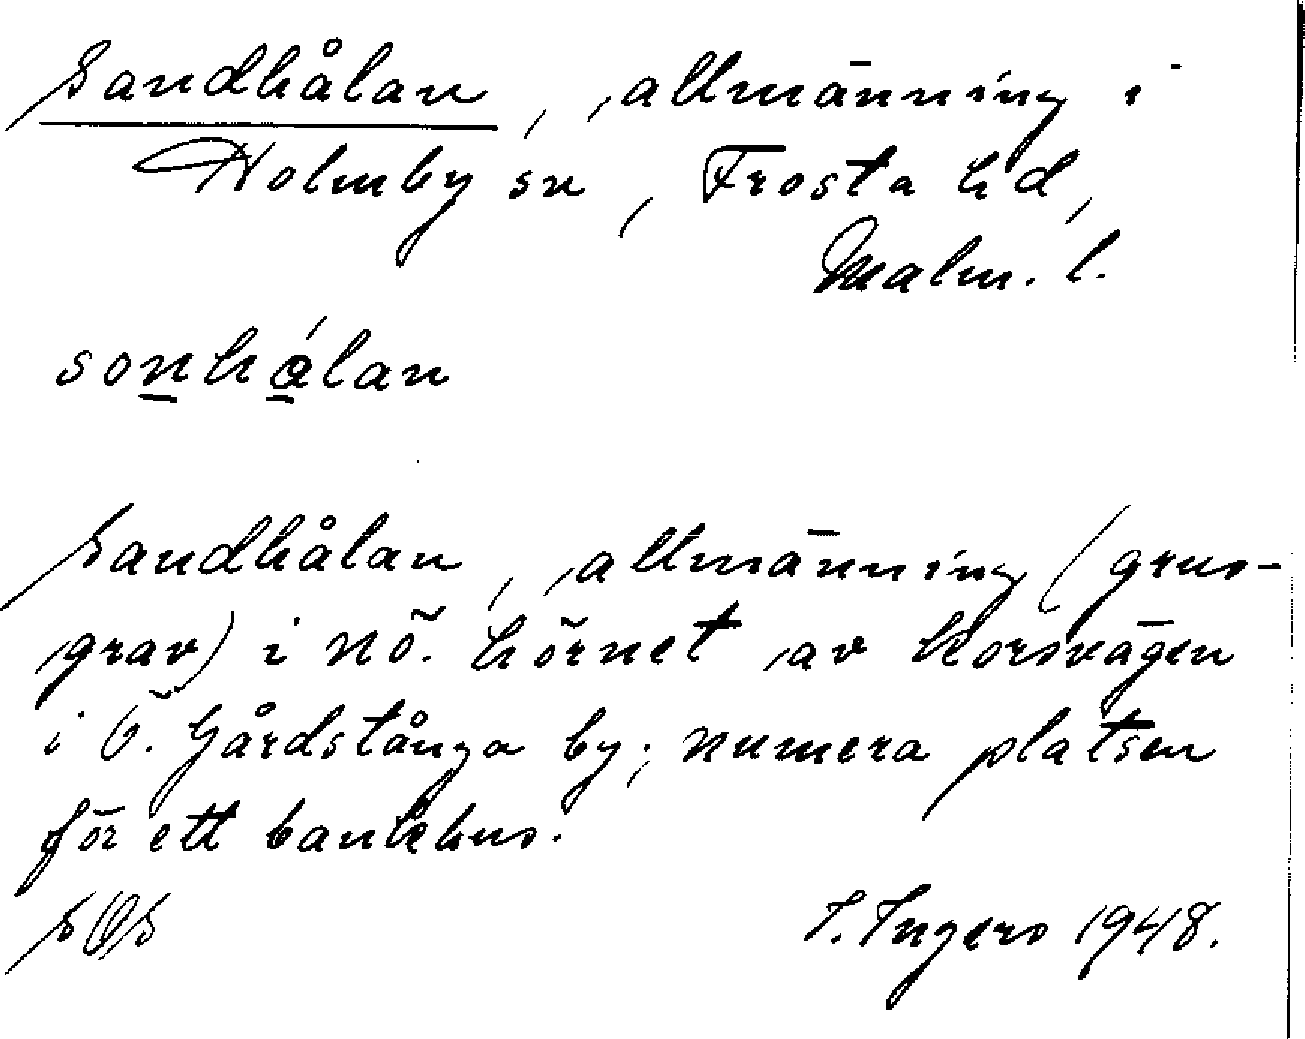 Sandhålan, allmänning i
Holmby sn, Frosta hd,
Malm. l.
sonhálan
Sandhålan, allmänning (grus-
grav) i NÖ. hörnet av korsvägen
i Ö. Gårdstånga by; numera platsen
för ett bankhus.
SOS I. Ingers 1948.